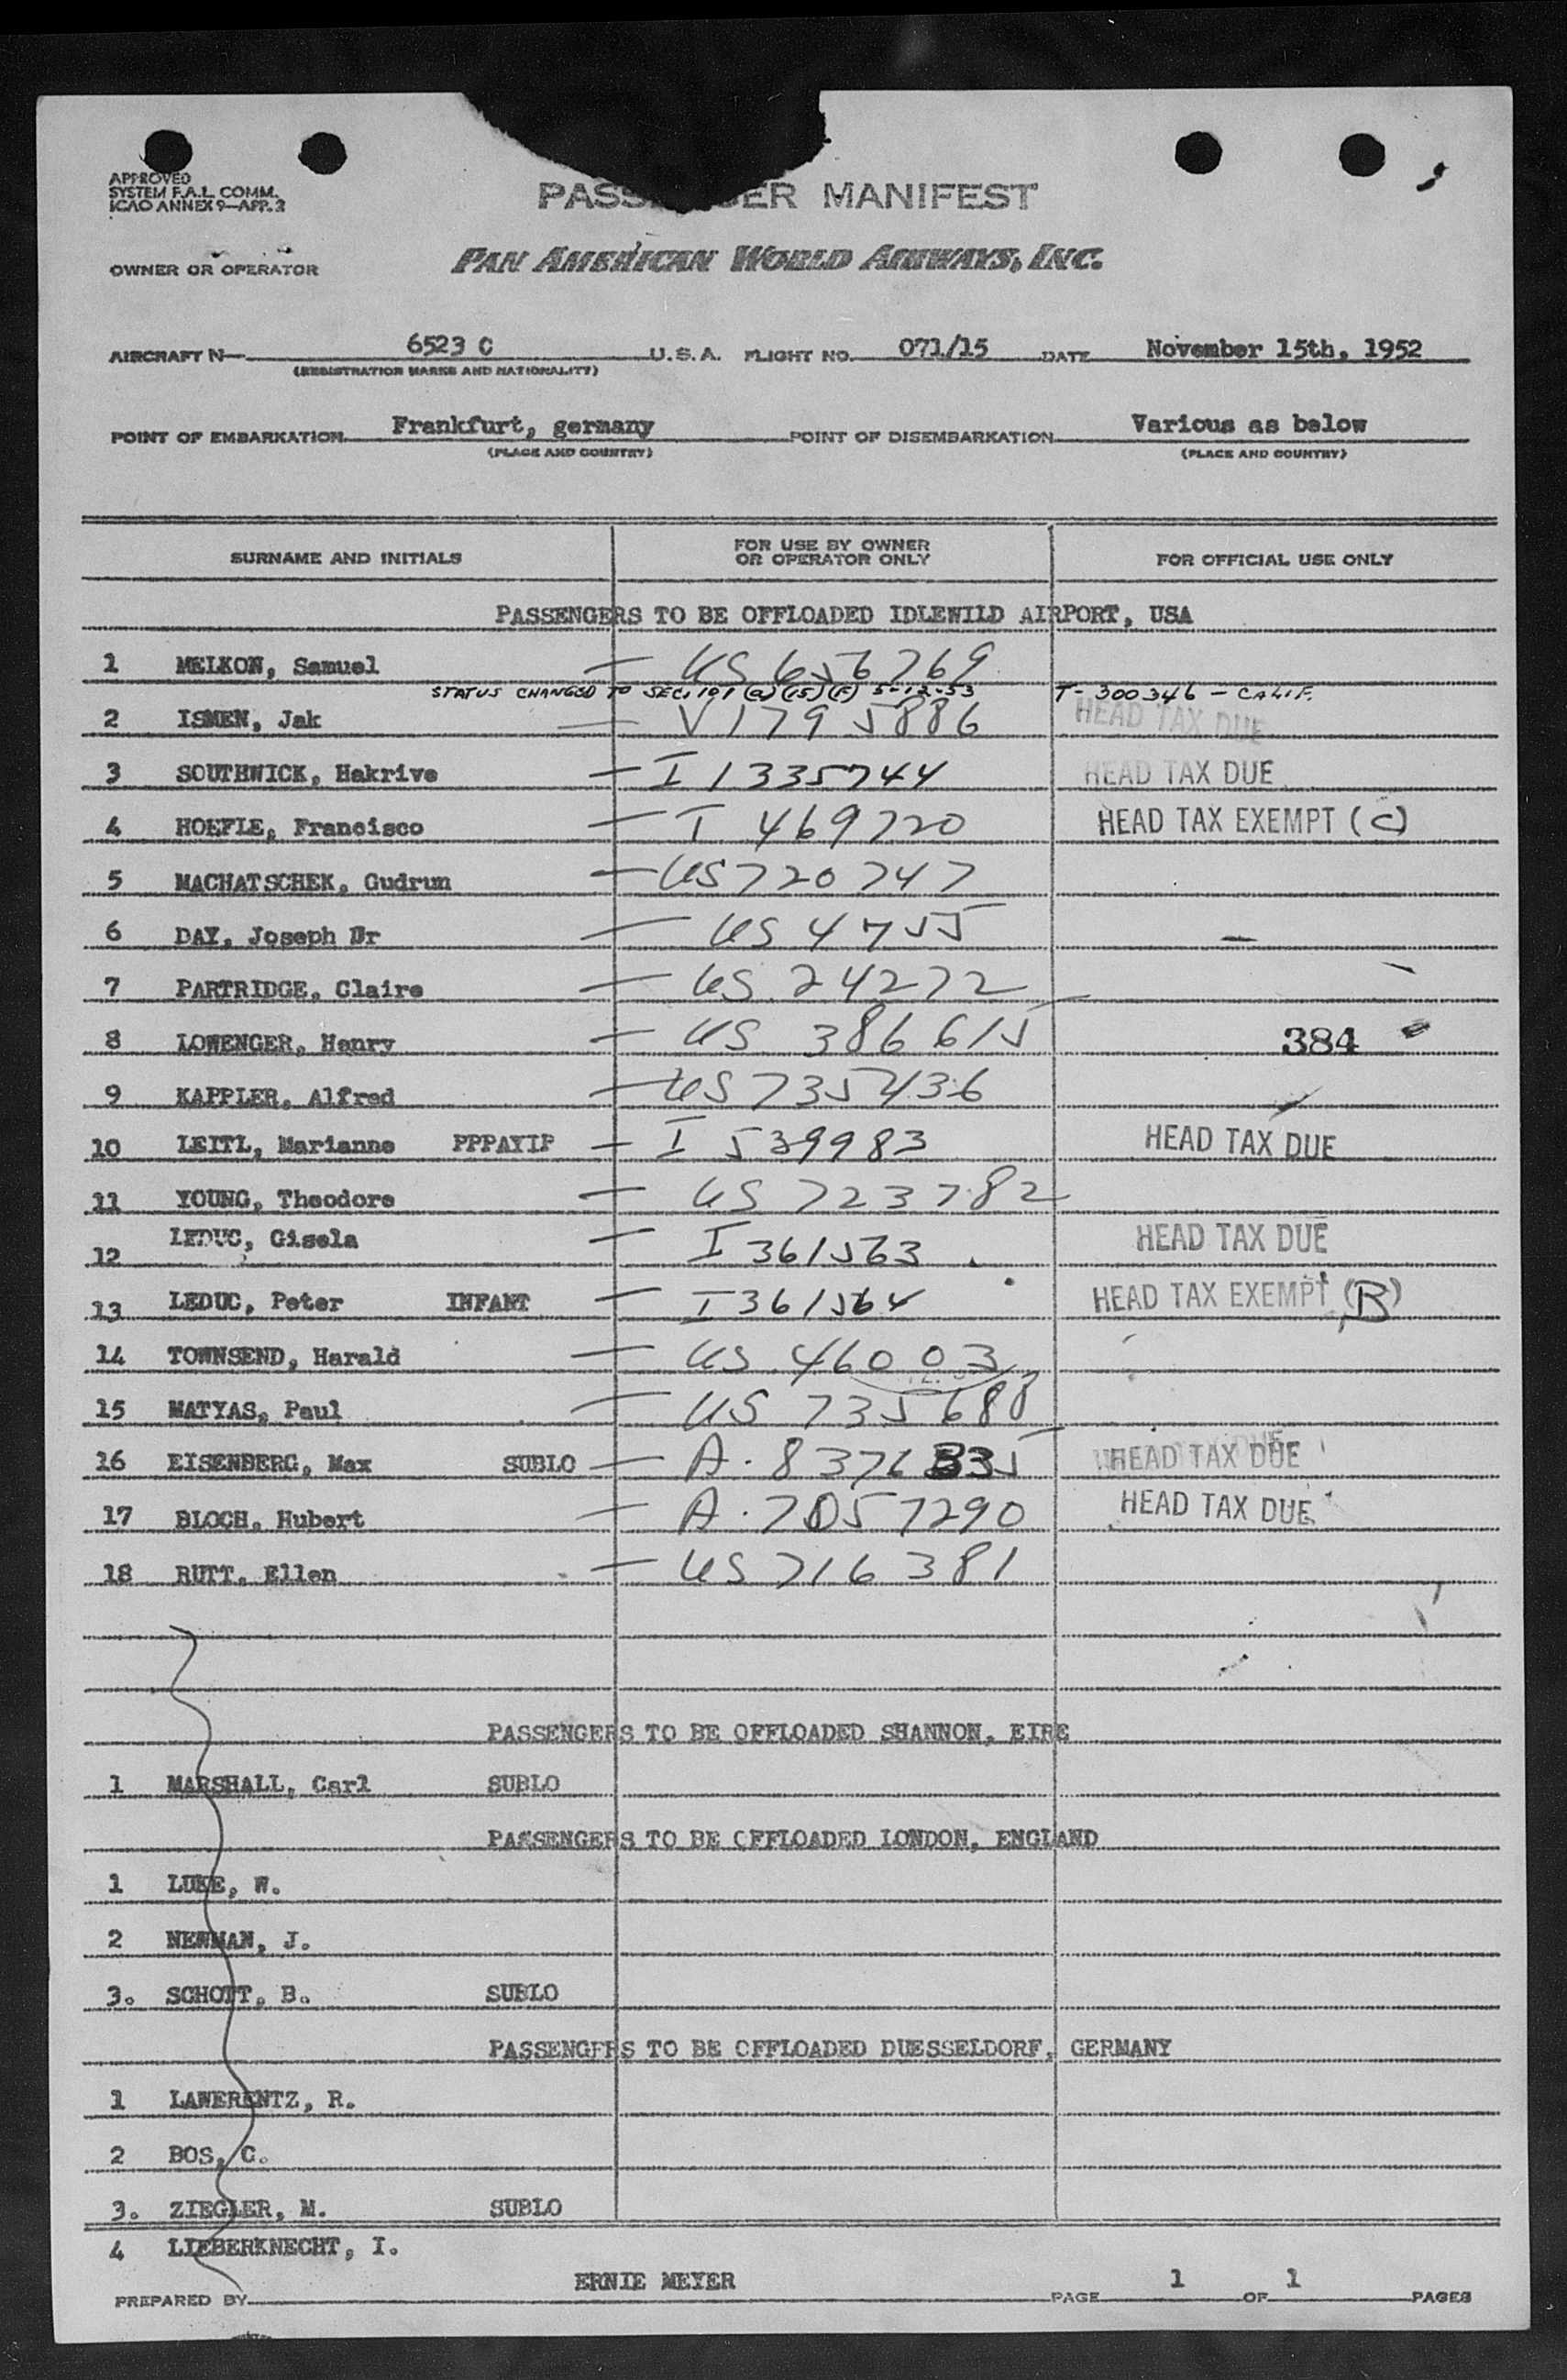 APPROVED
SYSTEM F.A.L. COMM.
ICAO ANNEX 9—APP. 2
PASSENGER MANIFEST
OWNER OR OPERATOR PAN AMERICAN WORLD AIRWAYS, INC.
AIRCRAFT N— 6523 C U.S.A. FLIGHT NO. 071/15 DATE November 15th, 1952
(REGISTRATION MARKS AND NATIONALITY)
POINT OF EMBARKATION Frankfurt, germany POINT OF DISEMBARKATION Various as below
(PLACE AND COUNTRY) (PLACE AND COUNTRY)
SURNAME AND INITIALS FOR USE BY OWNER OR OPERATOR ONLY FOR OFFICIAL USE ONLY
PASSENGERS TO BE OFFLOADED IDLEWILD AIRPORT, USA
1 MELKON, Samuel — US 656769
STATUS CHANGED TO SEC. 101 (a) (15) (F) 5-12-53 T-300346 - CALIF.
2 ISMEN, Jak — V 1795886 HEAD TAX DUE
3 SOUTHWICK, Hakrive — I 1335744 HEAD TAX DUE
4 HOEFLE, Francisco — I 469720 HEAD TAX EXEMPT (C)
5 MACHATSCHEK, Gudrun — US 720747
6 DAY, Joseph Dr — US 4755
7 PARTRIDGE, Claire — US 24272
8 LOWENGER, Henry — US 386615 384
9 KAPPLER, Alfred — US 735436
10 LEITL, Marianne PPPAYIP — I 539983 HEAD TAX DUE
11 YOUNG, Theodore — US 723782
12 LEDUC, Gisela — I 361563 HEAD TAX DUE
13 LEDUC, Peter INFANT — I 361564 HEAD TAX EXEMPT (B)
14 TOWNSEND, Harald — US 46003
15 MATYAS, Paul — US 735688
16 EISENBERG, Max SUBLO — A. 8376335 HEAD TAX DUE
17 BLOCH, Hubert — A. 7057290 HEAD TAX DUE
18 RUTT, Ellen — US 716381
PASSENGERS TO BE OFFLOADED SHANNON, EIRE
1 MARSHALL, Carl SUBLO
PASSENGERS TO BE OFFLOADED LONDON, ENGLAND
1 LUKE, W.
2 NEWMAN, J.
3. SCHOTT, B. SUBLO
PASSENGERS TO BE OFFLOADED DUESSELDORF, GERMANY
1 LAWERENTZ, R.
2 BOS, C.
3. ZIEGLER, M. SUBLO
4 LIEBERKNECHT, I.
PREPARED BY ERNIE MEYER PAGE 1 OF 1 PAGES